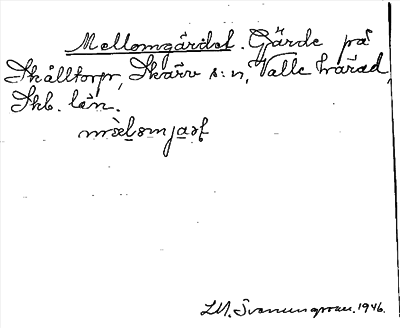 Mellomgärdet. Gärde på
Skålltorp, Skärv s:n, Valle härad,
Skb. län.
L.M. Svanungsson. 1946.